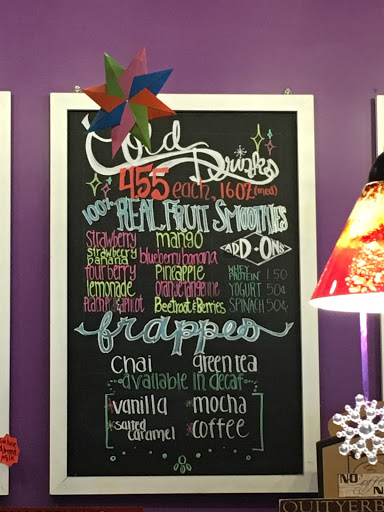 Cold
Drinks
455 each, 16oz (med)
100% REAL FRUIT SMOOTHIES
strawberry mango
strawberry banana blueberry banana
four berry pineapple
lemonade orange tangerine
Beetroot & Berries
ADD-ONS
WHEY PROTEIN 1 50
YOGURT 50¢
SPINACH 50¢
frappes
chai green tea
available in decaf
*vanilla *mocha
*salted caramel *coffee
NO
NO